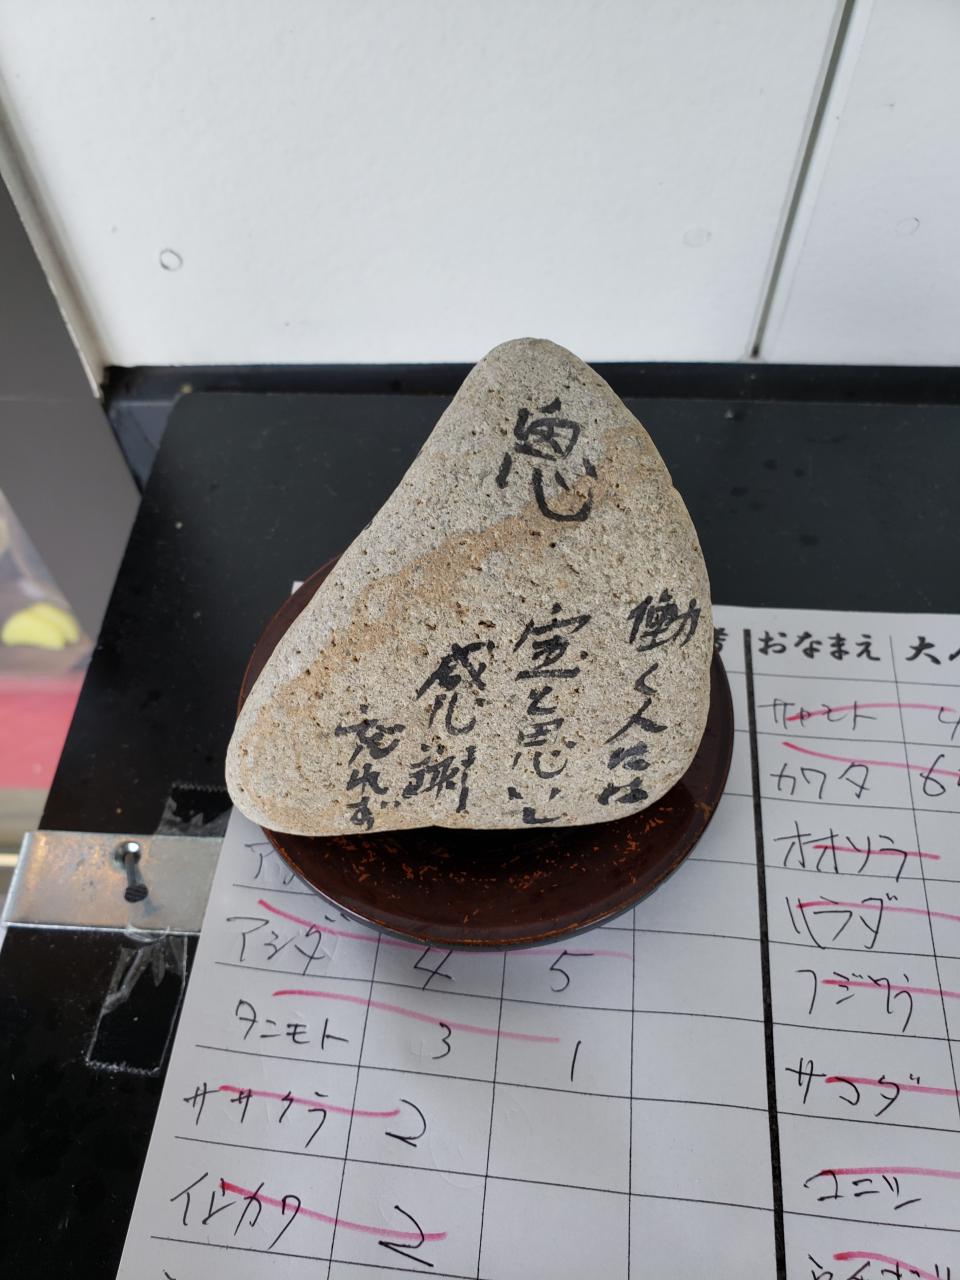 恩
働く人には
宝と思い
感謝
忘れず
おなまえ
大人
ヤマモト
カワタ
オオソラ
ハラダ
フジワラ
サコダ
コニシ
アシダ 4 5
タニモト 3 1
ササクラ 2
イシカワ 2